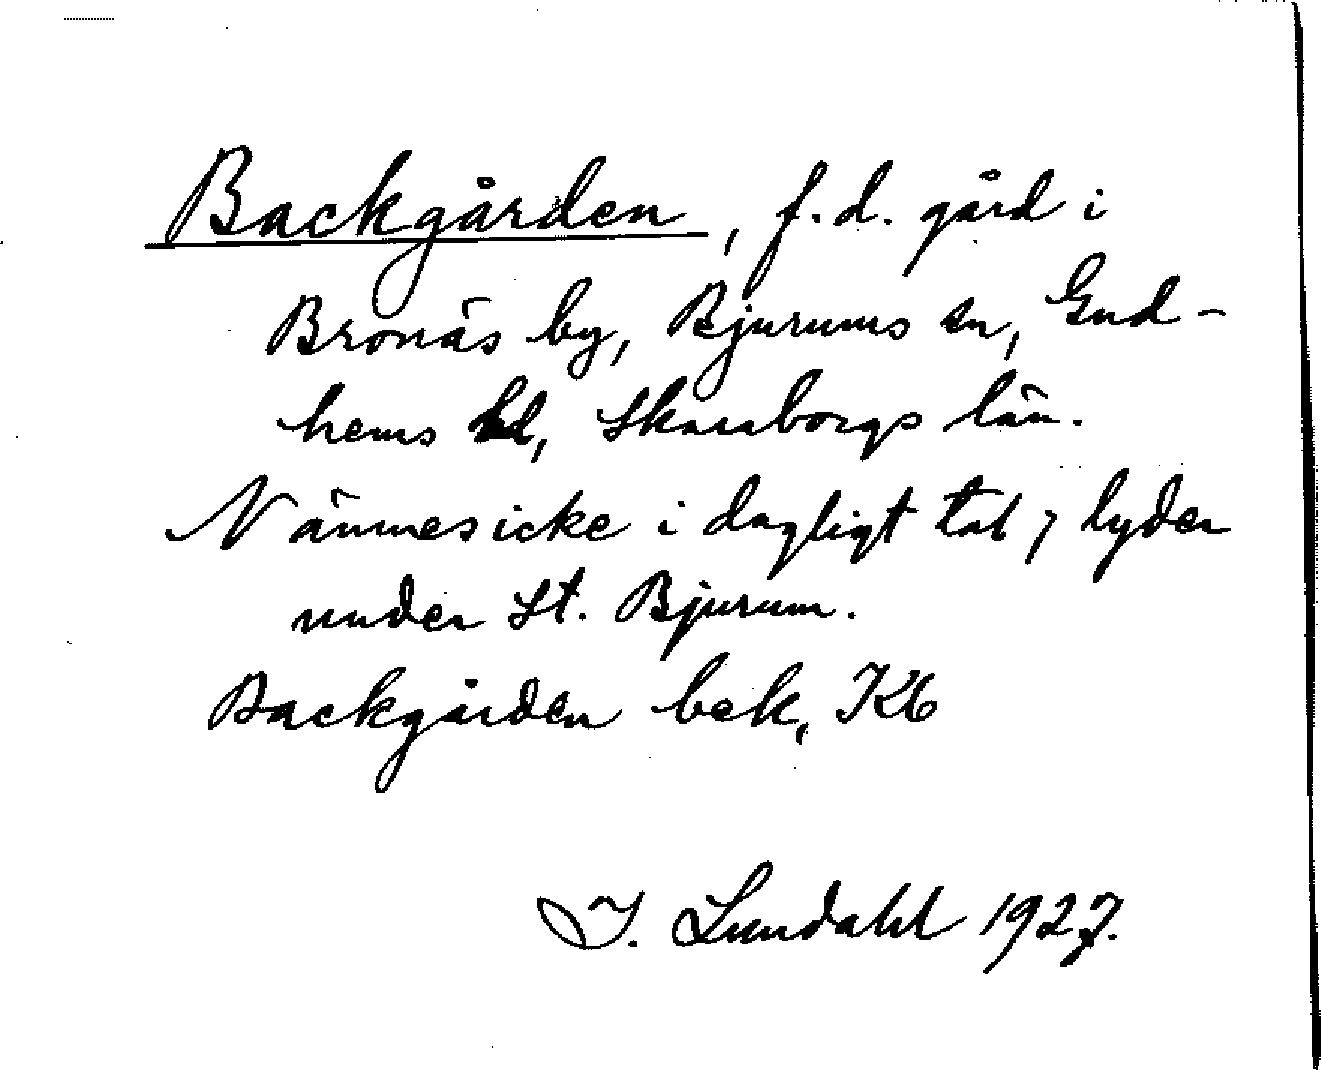 Backgården, f.d. gård i
Bronäs by, Bjurums sn, Gud-
hems hd, Skaraborgs län.
Nämnes icke i dagligt tal, lyder
under St. Bjurum.
Backgården bek, Kb
I. Lundahl 1927.